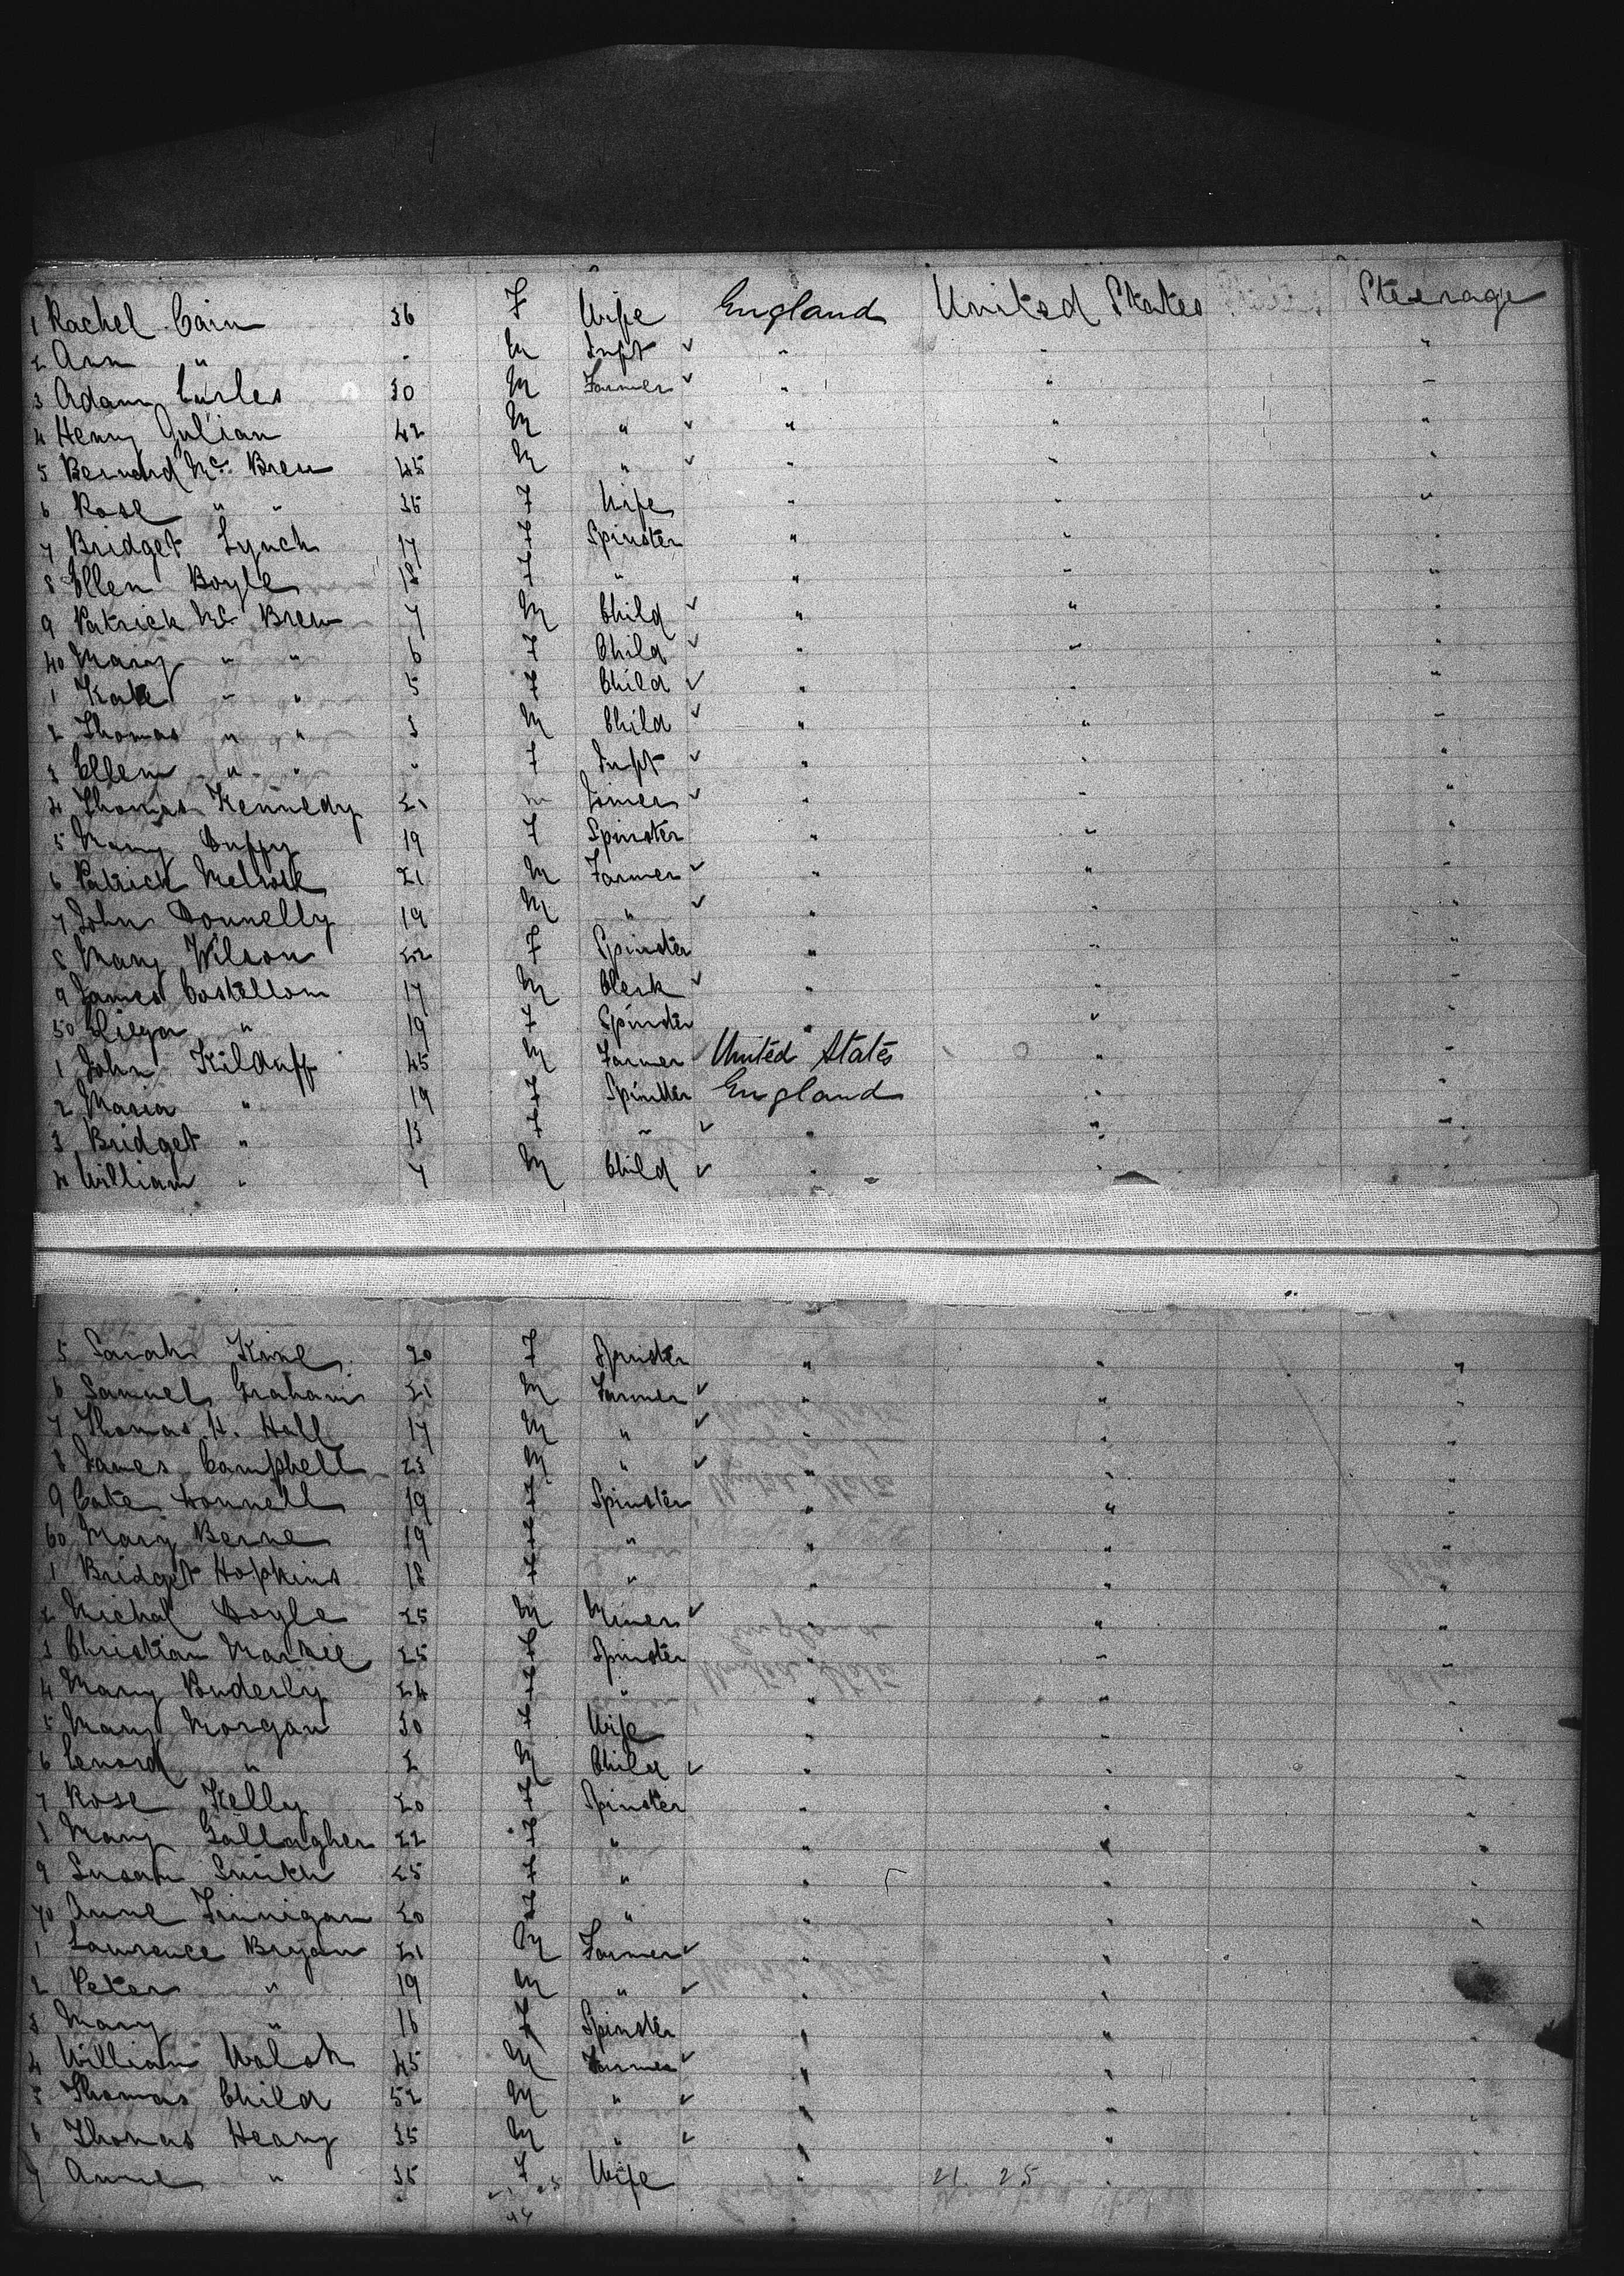 1 Rachel Cain 36 F Wife England United States Steerage
2 Ann " " M Inft " " "
3 Adam Curles 30 M Farmer " " "
4 Henry Gulian 42 M " " " "
5 Bernard Mc Bren 45 M " " " "
6 Rose " " 35 F Wife " " "
7 Bridget Lynch 17 F Spinster " " "
8 Ellen Boyle 18 F " " " "
9 Patrick Mc Bren 7 M Child " " "
40 Mary " " 6 F Child " " "
1 Kate " " 5 F Child " " "
2 Thomas " " 3 M Child " " "
3 Ellen " " " F Inft " " "
4 Thomas Kennedy 21 m Joiner " " "
5 Mary Duffy 19 F Spinster " " "
6 Patrick 21 M Farmer " " "
7 John Donnelly 19 M " " " "
8 Mary Wilson 22 F Spinster " " "
9 James Costellom 17 M Clerk " " "
50 Liza " 19 F Spinster " " "
1 John Kilduff 45 M Farmer United States " "
2 Maria " 19 F Spinster England " "
3 Bridget " 13 F " " " "
4 William " 7 M Child " " "
5 Sarah King 20 F Spinster " " "
6 Samuel Graham 21 M Farmer " " "
7 Thomas H. Hall 17 M " " " "
8 James Campbell 23 M " " " "
9 Cate Connell 19 F Spinster " " "
60 Mary Berne 19 F " " " "
1 Bridget Hopkins 18 F " " " "
2 Michal Doyle 25 M Miner " " "
3 Christian 25 F Spinster " " "
4 Mary Ponderly 24 F " " " "
5 Mary Morgan 30 F Wife " " "
6 Lenord " 2 M Child " " "
7 Rose Kelly 20 F Spinster " " "
8 Mary Gallagher 22 F " " " "
9 Susan Smith 25 F " " " "
70 Anne Finnigan 20 F " " " "
1 Lawrence Bryan 21 M Farmer " " "
2 Peter " 19 M " " " "
3 Mary " 16 F Spinster " " "
4 William Walsh 45 M Farmer " " "
5 Thomas Child 52 M " " " "
6 Thomas Heany 35 M " " " "
7 Anne " 35 F Wife " 21. 25 " "